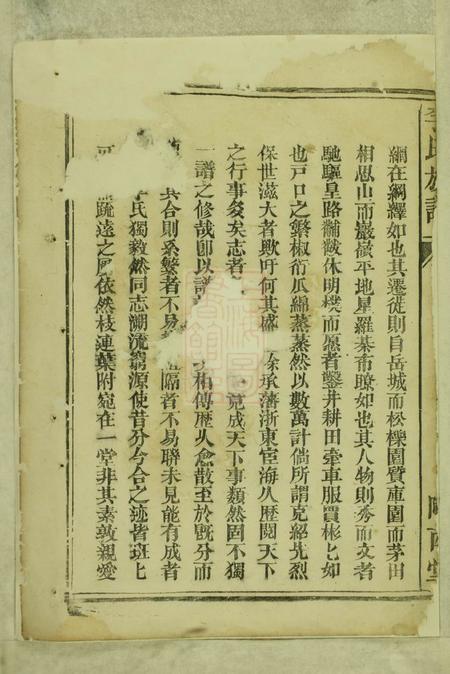 李氏族譜
隴西堂
綱在綱繹如也其遷徙則自岳城而松櫟園質庫園而茅田
相思山而巖嶺平地星羅棊布瞭如也其人物則秀而文者
馳驅皇路黼黻休明樸而愿者鑿井耕田牽車服賈彬匕如
也戸口之繁椒衍瓜綿蒸蒸然以數萬計倘所謂克紹先烈
保世滋大者歟吁何其盛 余承藩浙東宦海久歴閱天下
之行事夋矣志者 竟成天下事類然固不獨
一譜之修哉卽以譜 相傳歴久愈散至於旣分而
其合則系繁者不易 隔者不易聯未見能有成者
李氏獨毅然同志溯流窮源使昔分今合之迹者班匕
可 疏遠之 依然枝連葉附宛在一堂非其素敦親愛